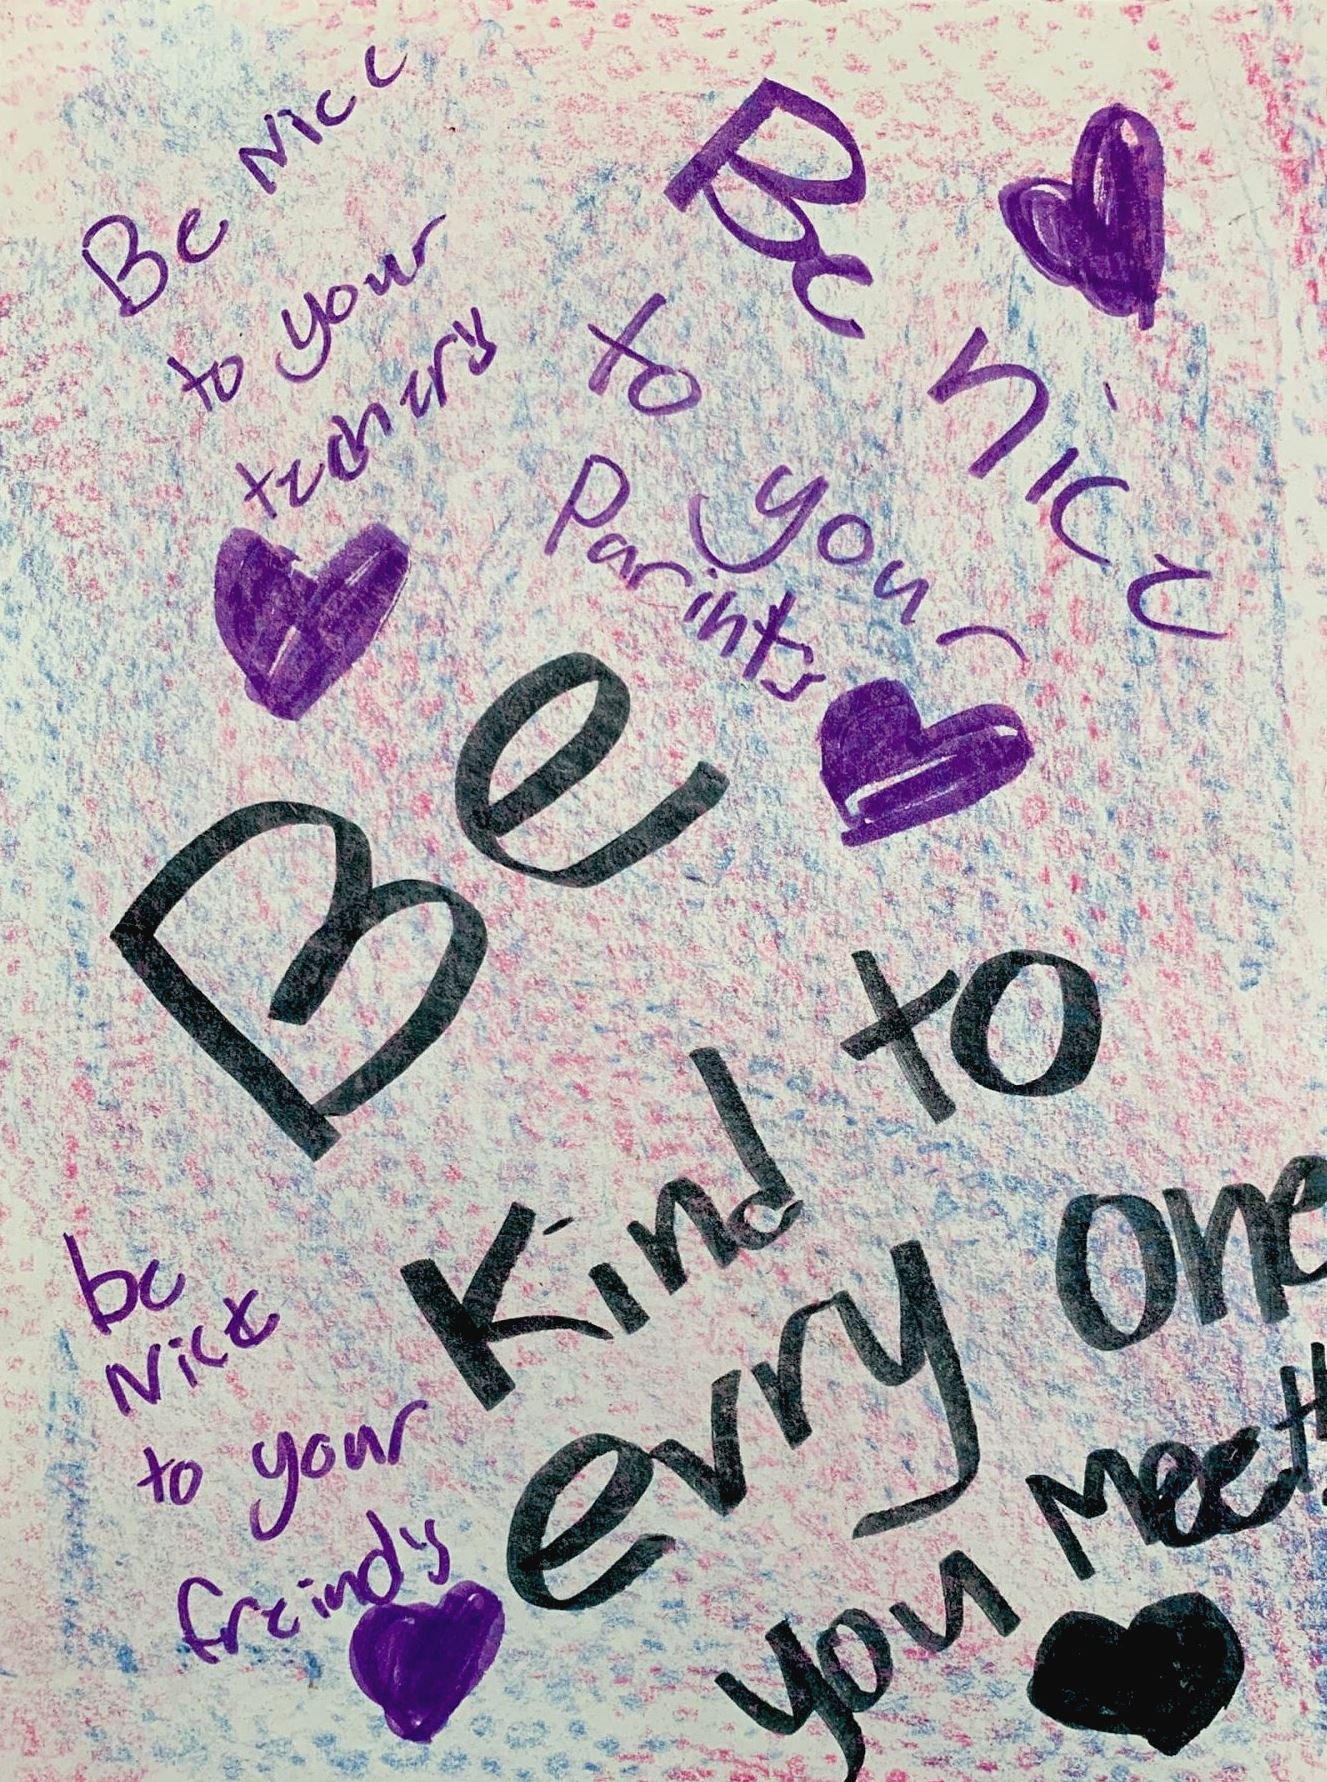 Be Nice
to your
teachery
Be nice
to your
Parints
Be
Kind to
evry one
you Meet!
be
Nice
to your
freindy